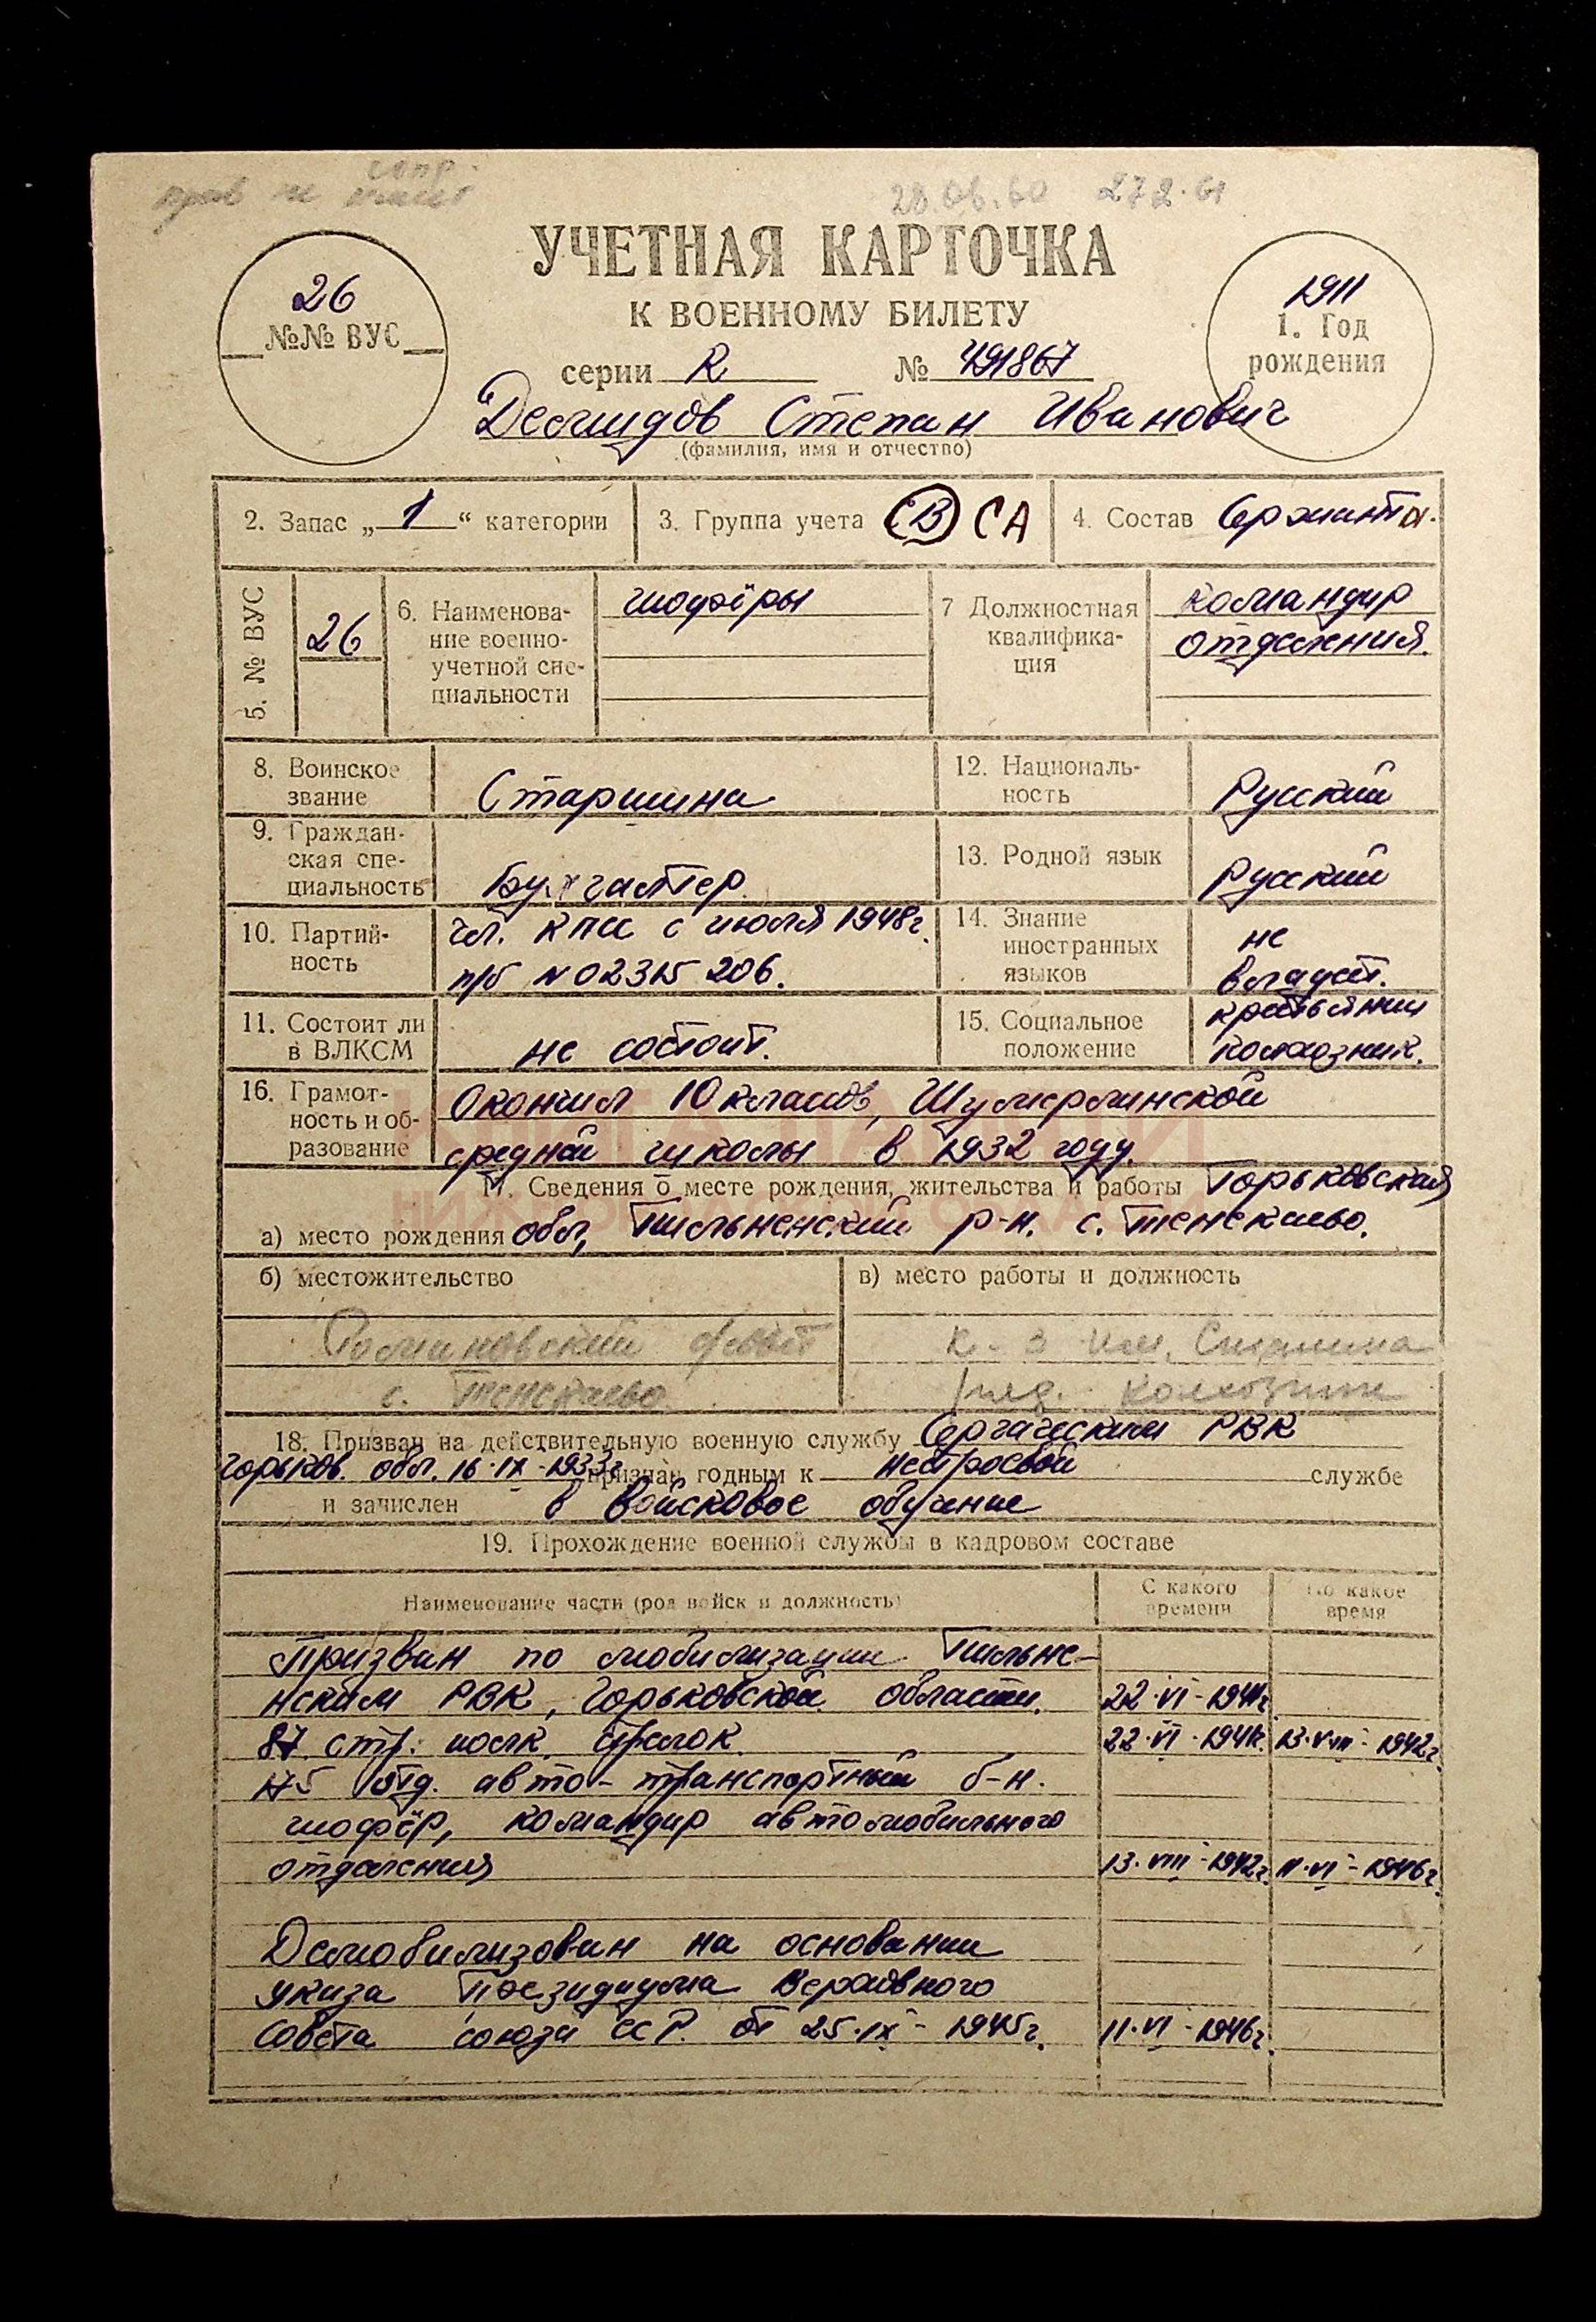 28.06.60 272.61
УЧЕТНАЯ КАРТОЧКА
К ВОЕННОМУ БИЛЕТУ
серии R № 491867
26
№№ ВУС
1911
1. Год
рождения
Демидов Степан Иванович
(фамилия, имя и отчество)
2. Запас „ 1 “ категории
3. Группа учета (В) СА
4. Состав Сержанты.
5. № ВУС
26
6. Наименова-
ние военно-
учетной спе-
циальности
шофёры
7 Должностная
квалифика-
ция
командир
отделения.
8. Воинское
звание
Старшина
12. Националь-
ность
Русский
9. Граждан-
ская спе-
циальность
Бухгалтер
13. Родной язык
Русский
10. Партий-
ность
чл. КПСС с июля 1948г.
п/б № 02315206.
14. Знание
иностранных
языков
не
владеет.
11. Состоит ли
в ВЛКСМ
не состоит.
15. Социальное
положение
крестьянин
колхозник.
16. Грамот-
ность и об-
разование
Окончил 10 классов, Шумерлинской
средней школы в 1932 году.
КНИГА ПАМЯТИ
НИЖЕГОРОДСКОЙ ОБЛАСТИ
17. Сведения о месте рождения, жительства и работы Горьковская
а) место рождения обл, Пильненский р-н. с. Тенекаево.
б) местожительство
Романовский с/совет
с. Тенекаево
в) место работы и должность
к-з им. Сталина
ряд. колхозник
18. Призван на действительную военную службу Сергачским РВК
Горьков. обл. 16·IX-1933г признан годным к нестроевой службе
и зачислен в войсковое обучение
19. Прохождение военной службы в кадровом составе
Наименование части (род войск и должность)
С какого
времени
По какое
время
Призван по мобилизации Пильне-
нским РВК, Горьковской области. 22·VI-1941г.
87 стр. полк, стрелок. 22·VI·1941г. 13·VIII-1942г.
175 отд. авто-транспортный б-н.
шофёр, командир автомобильного
отделения 13·VIII-1942г. 11·VI-1946г.
Демобилизован на основании
указа Президиума Верховного
Совета союза ССР. от 25·IX-1945г. 11·VI-1946г.